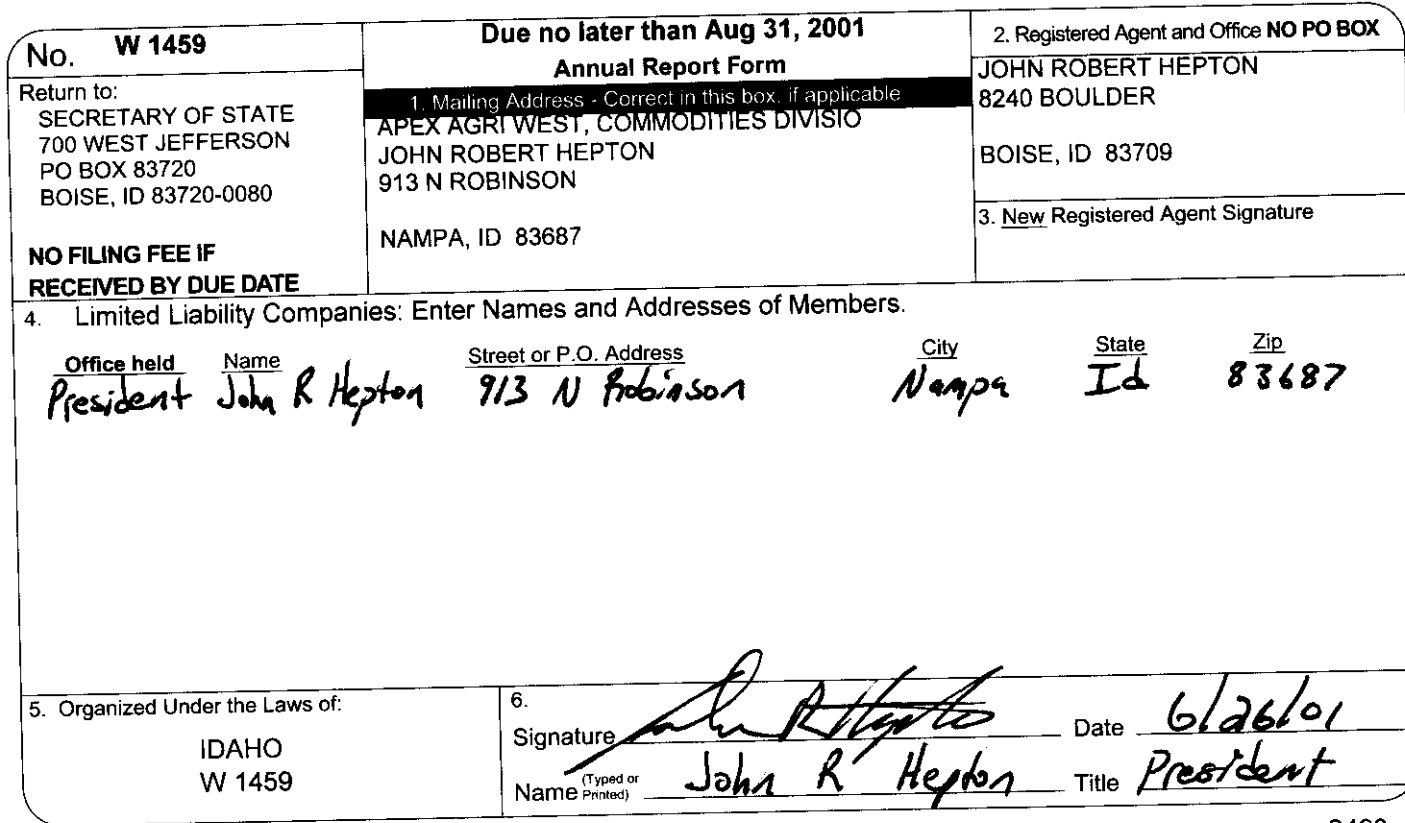 No. W 1459
Return to:
SECRETARY OF STATE
700 WEST JEFFERSON
PO BOX 83720
BOISE, ID 83720-0080
NO FILING FEE IF
RECEIVED BY DUE DATE
Due no later than Aug 31, 2001
Annual Report Form
1. Mailing Address - Correct in this box, if applicable
APEX AGRI WEST, COMMODITIES DIVISIO
JOHN ROBERT HEPTON
913 N ROBINSON
NAMPA, ID 83687
2. Registered Agent and Office NO PO BOX
JOHN ROBERT HEPTON
8240 BOULDER
BOISE, ID 83709
3. New Registered Agent Signature
4. Limited Liability Companies: Enter Names and Addresses of Members.
Office held Name Street or P.O. Address City State Zip
President John R Hepton 913 N Robinson Nampa Id 83687
5. Organized Under the Laws of:
IDAHO
W 1459
6.
Signature John R Hepton Date 6/26/01
Name (Typed or Printed) John R Hepton Title President